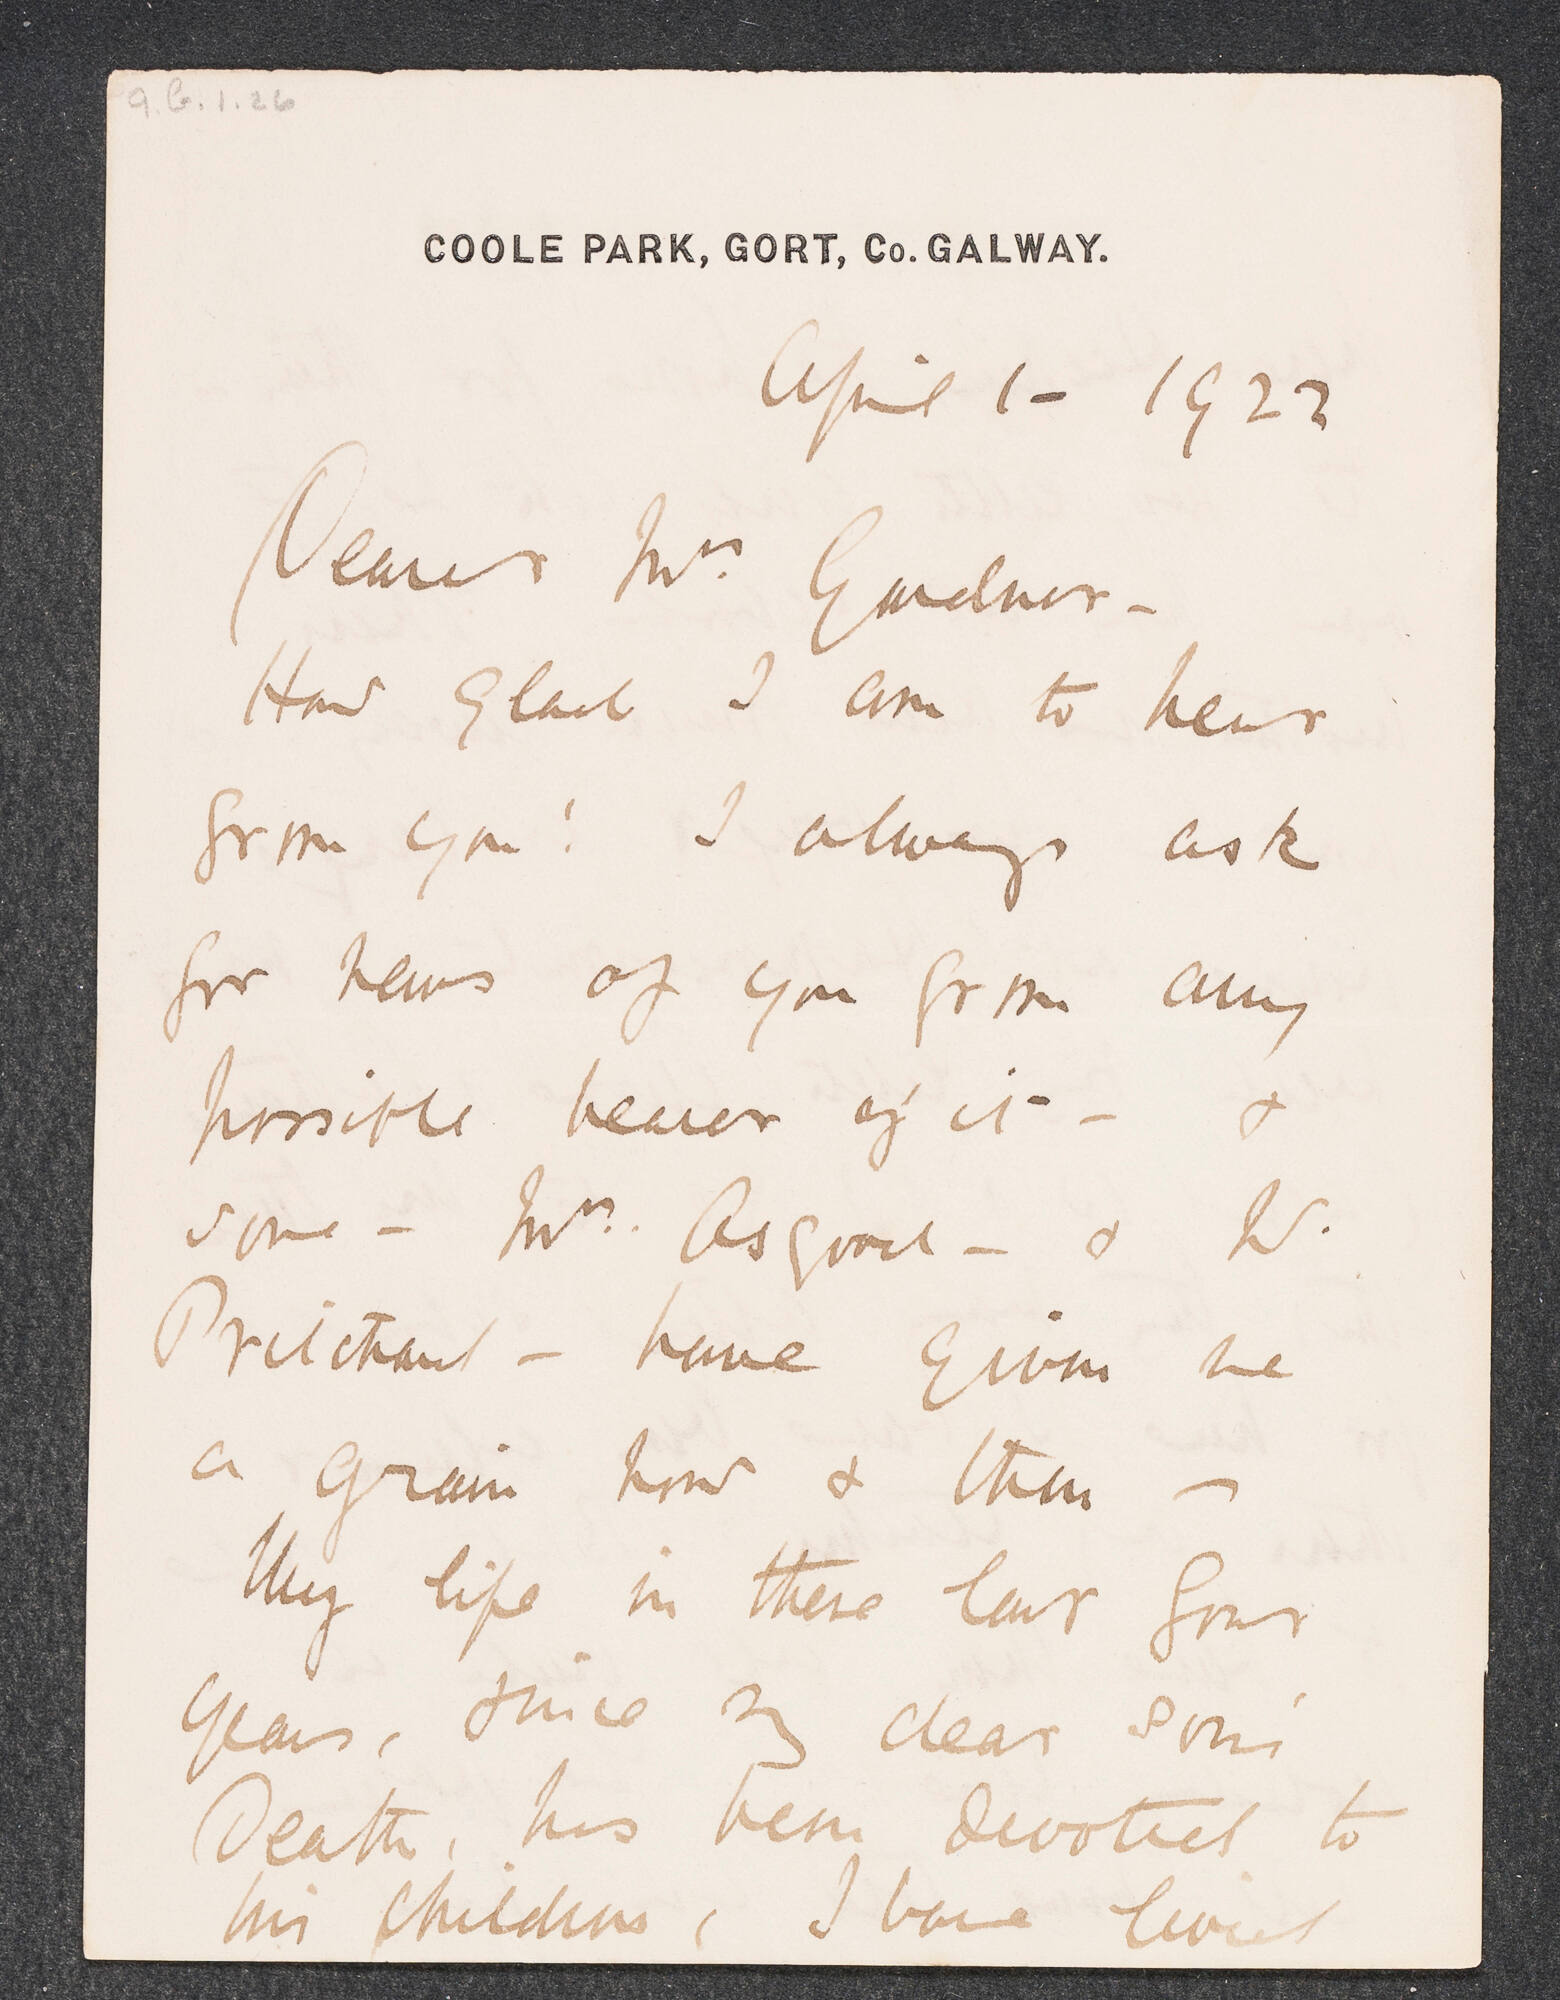 a.G.1.26
COOLE PARK, GORT, Co. GALWAY.
April 1 - 1922
Dearest Mrs Gardner -
How glad I am to hear
from you! I always ask
for news of you from any
possible bearer of it - &
some - Mrs. Asgood - & W.
Pritchard - have given me
a grain now & then -
My life in these last four
years, since my dear son's
Death, has been devoted to
his children, I have lived